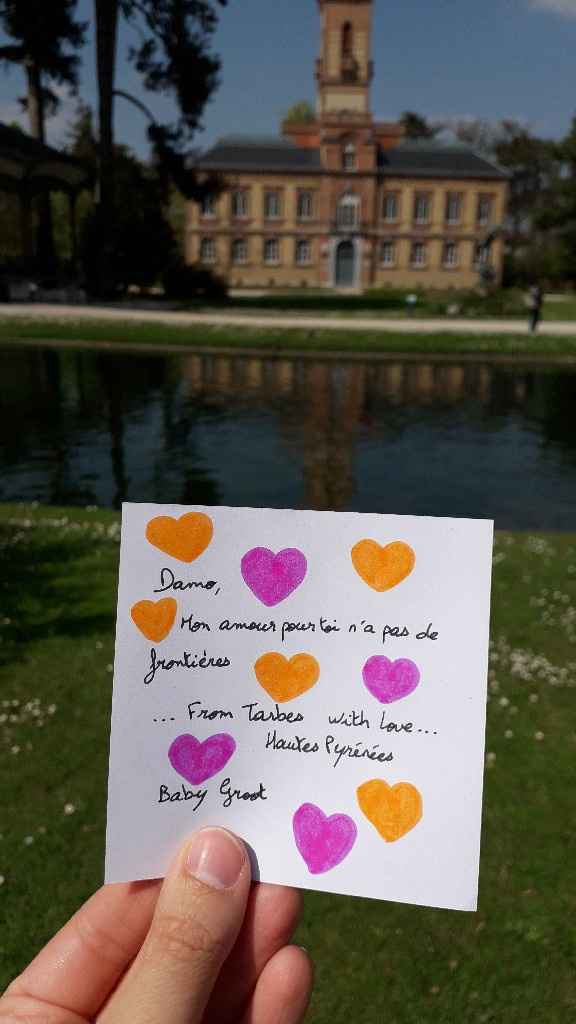 Damo,
Mon amour pour toi n'a pas de
frontiéres
... From Tarbes with love...
Hautes Pyrénées
Baby Groot